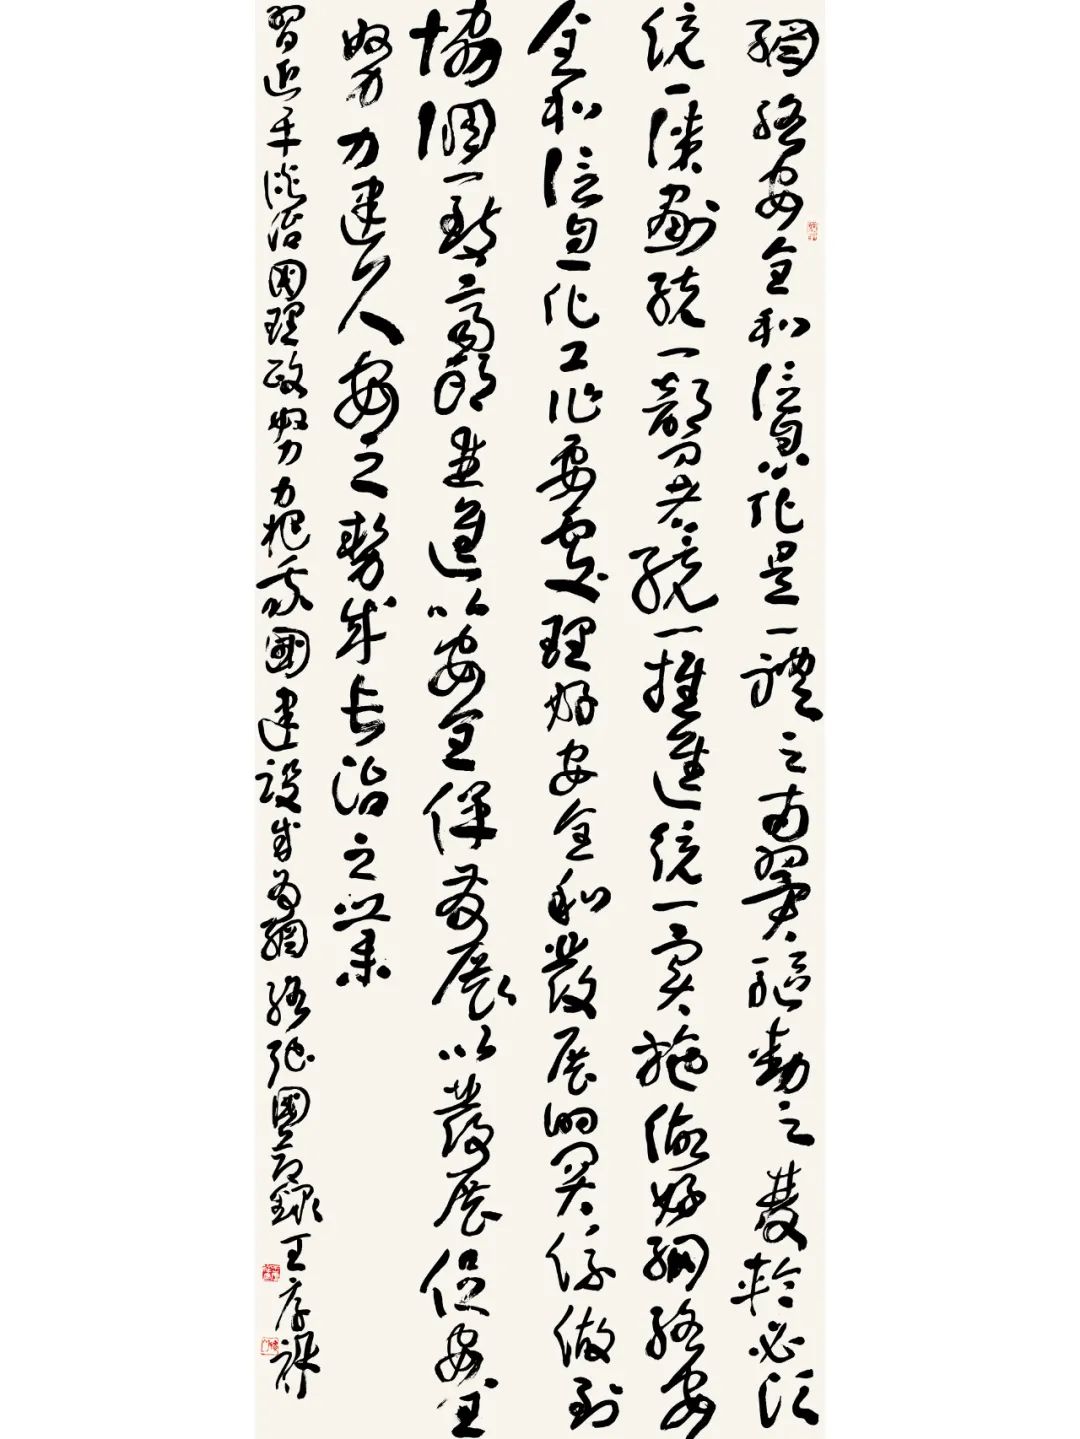 網絡安全和信息化是一體之兩翼驅動之雙輪必須
統一謀劃統一部署統一推進統一實施做好網絡安
全和信息化工作要處理好安全和發展的關係做到
協調一致齊頭並進以安全保發展以發展促安全
努力建久安之勢成長治之業
習近平談治国理政努力把我國建設成為網絡強國節錄王厚祥